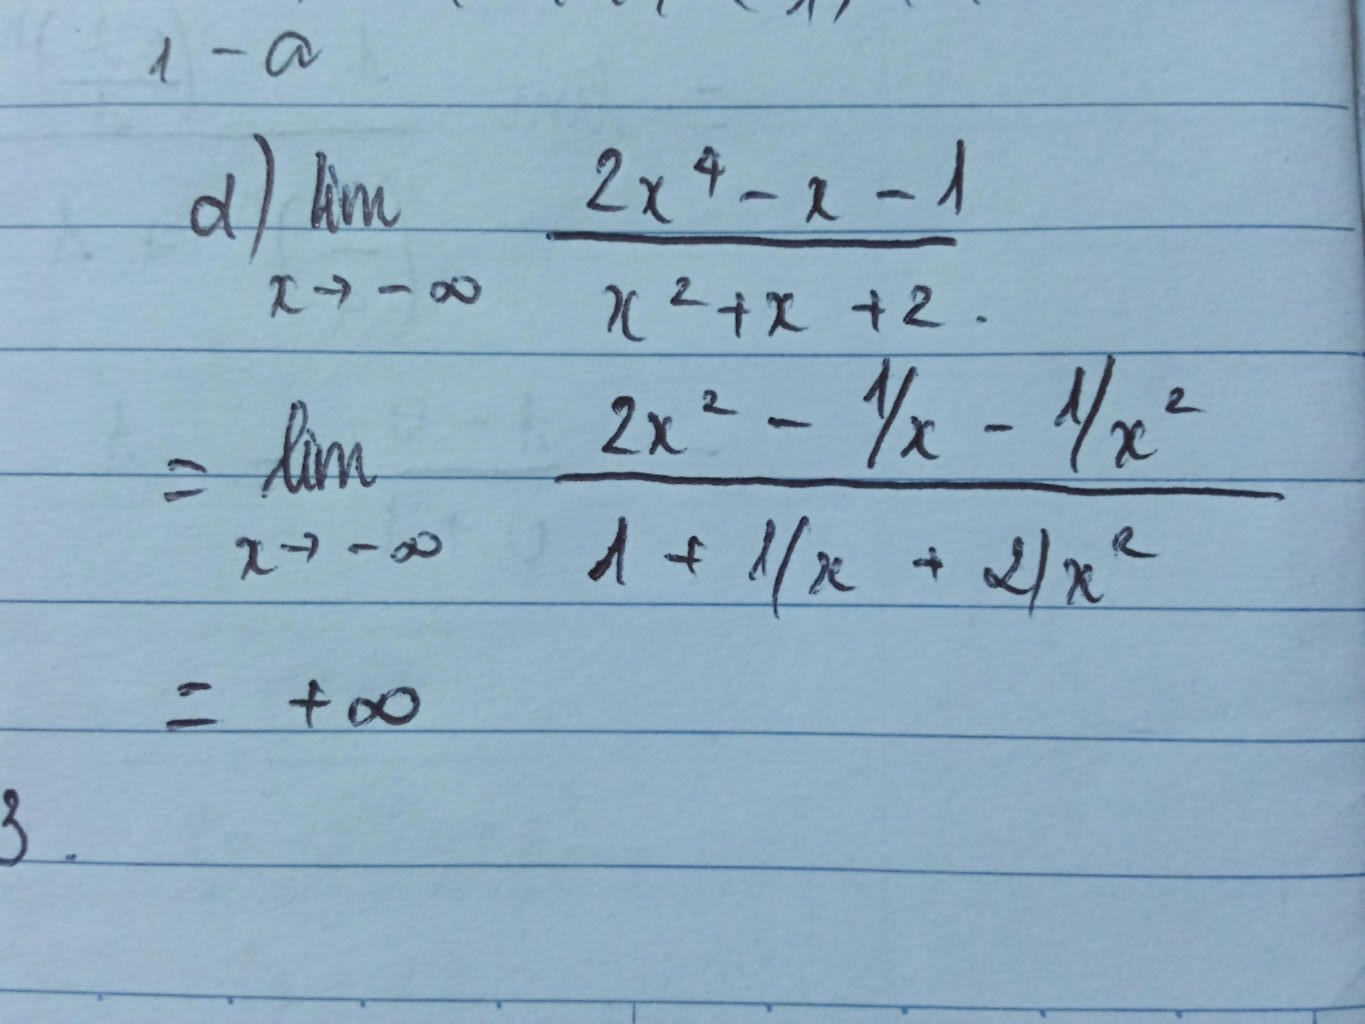 1 - a
d) lim 2x⁴ - x - 1
x → -∞ x² + x + 2.
= lim 2x² - 1/x - 1/x²
x → -∞ 1 + 1/x + 2/x²
= +∞
3.